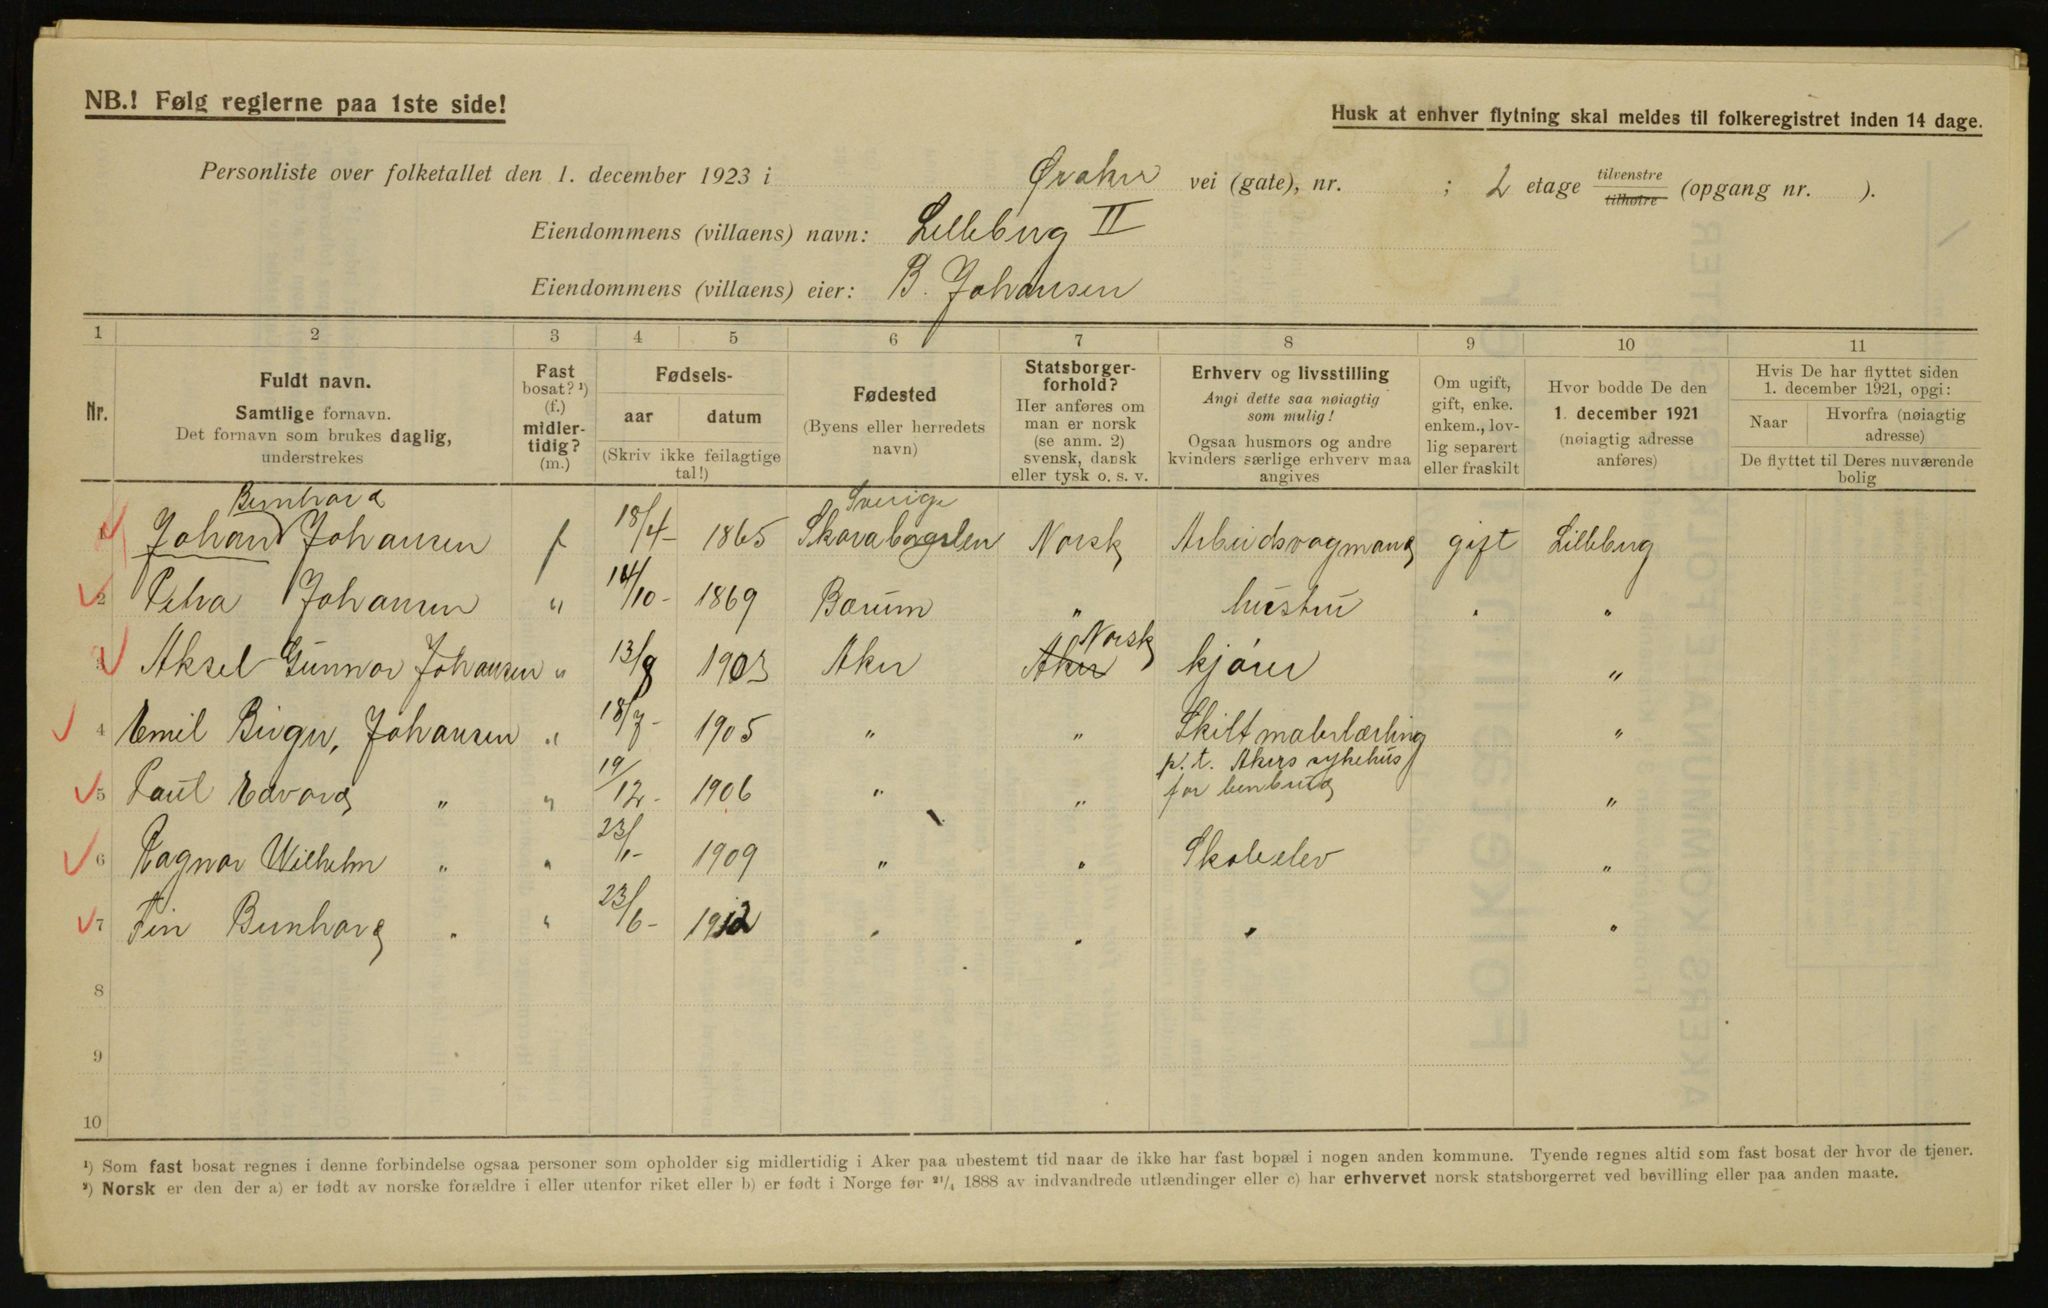 NB.! Følg reglerne paa 1ste side!
Husk at enhver flytning skal meldes til folkeregistret inden 14 dage.
Personliste over folketallet den 1. december 1923 i Øraker vei (gate), nr. ; 2 etage tilvenstre tilhøire (opgang nr. ).
Eiendommens (villaens) navn: Lilleberg II
Eiendommens (villaens) eier: B. Johansen
1 2 3 4 5 6 7 8 9 10 11
Nr.
Fuldt navn.
Samtlige fornavn.
Det fornavn som brukes daglig,
understrekes
Fast
bosat? ¹)
(f.)
midler-
tidig?
(m.)
Fødsels-
aar datum
(Skriv ikke feilagtige
tal!)
Fødested
(Byens eller herredets
navn)
Statsborger-
forhold?
Her anføres om
man er norsk
(se anm. 2)
svensk, dansk
eller tysk o. s. v.
Erhverv og livsstilling
Angi dette saa nøiagtig
som mulig!
Ogsaa husmors og andre
kvinders særlige erhverv maa
angives
Om ugift,
gift, enke.
enkem., lov-
lig separert
eller fraskilt
Hvor bodde De den
1. december 1921
(nøiagtig adresse
anføres)
Hvis De har flyttet siden
1. december 1921, opgi:
Naar
Hvorfra (nøiagtig
adresse)
De flyttet til Deres nuværende
bolig
Bernhard Sverige
1 Johan Johansen f 18/4- 1865 Skaraborgslen Norsk Arbeidsvogmand gift Lilleberg
2 Petra Johansen " 14/10- 1869 Bærum " hustru " "
Norsk
3 Aksel Gunnar Johansen " 13/8 1903 Aker Aker kjører "
4 Emil Birger, Johansen " 18/7- 1905 " " Skiltmalerlærling "
p.t. Akers sykehus
5 Paul Edvard " " 19/12- 1906 " " for benbrud "
6 Ragnar Wilhelm " " 23/1- 1909 " " Skoleelev "
7 Fin Bernhard " " 23/6- 1912 " " " "
8
9
10
¹) Som fast bosat regnes i denne forbindelse ogsaa personer som opholder sig midlertidig i Aker paa ubestemt tid naar de ikke har fast bopæl i nogen anden kommune. Tyende regnes altid som fast bosat der hvor de tjener.
²) Norsk er den der a) er født av norske forældre i eller utenfor riket eller b) er født i Norge før ²¹/₄ 1888 av indvandrede utlændinger eller c) har erhvervet norsk statsborgerret ved bevilling eller paa anden maate.